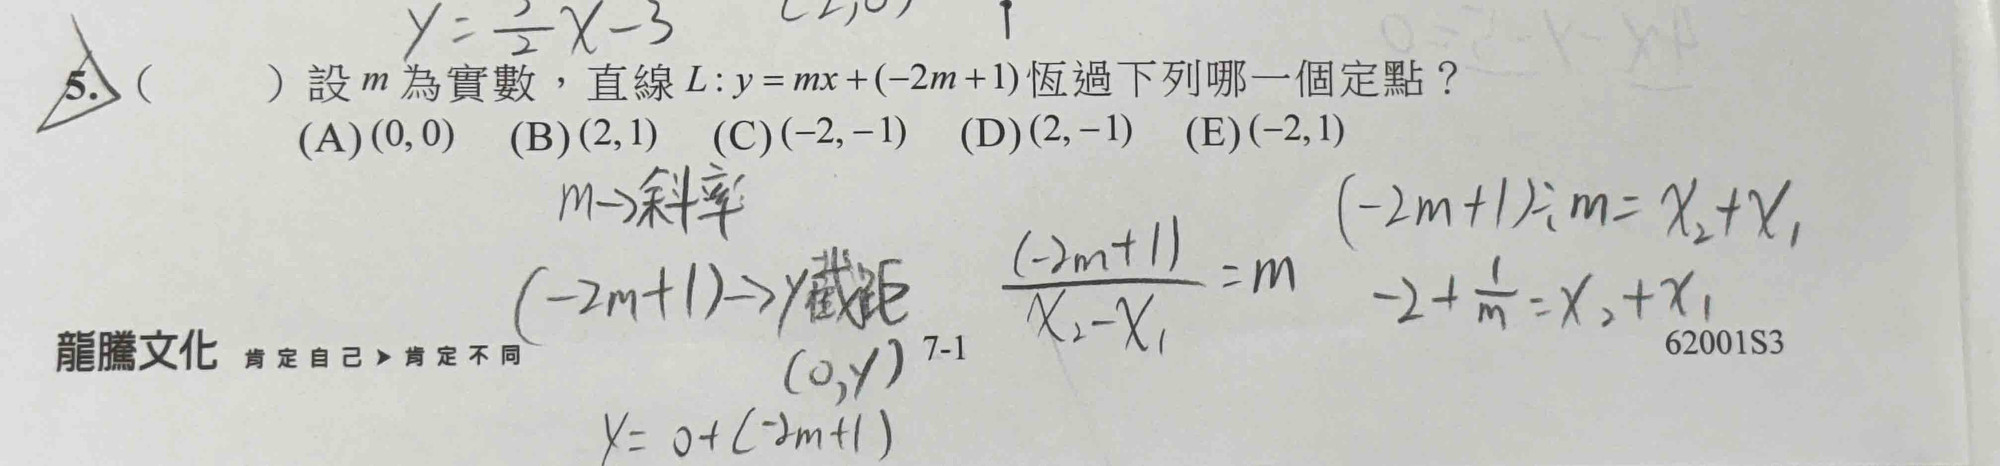 y = 3/2 x - 3
5. ( ) 設 m 為實數，直線 L : y = mx + (-2m + 1) 恆過下列哪一個定點？
(A) (0, 0) (B) (2, 1) (C) (-2, -1) (D) (2, -1) (E) (-2, 1)
m→斜率
(-2m+1)→y截距
(0,y)
y= 0+(-2m+1)
(-2m+1)/(x₂-x₁) = m
(-2m+1)÷m = x₂+x₁
-2+1/m = x₂+x₁
龍騰文化 肯定自己➤肯定不同
7-1
62001S3